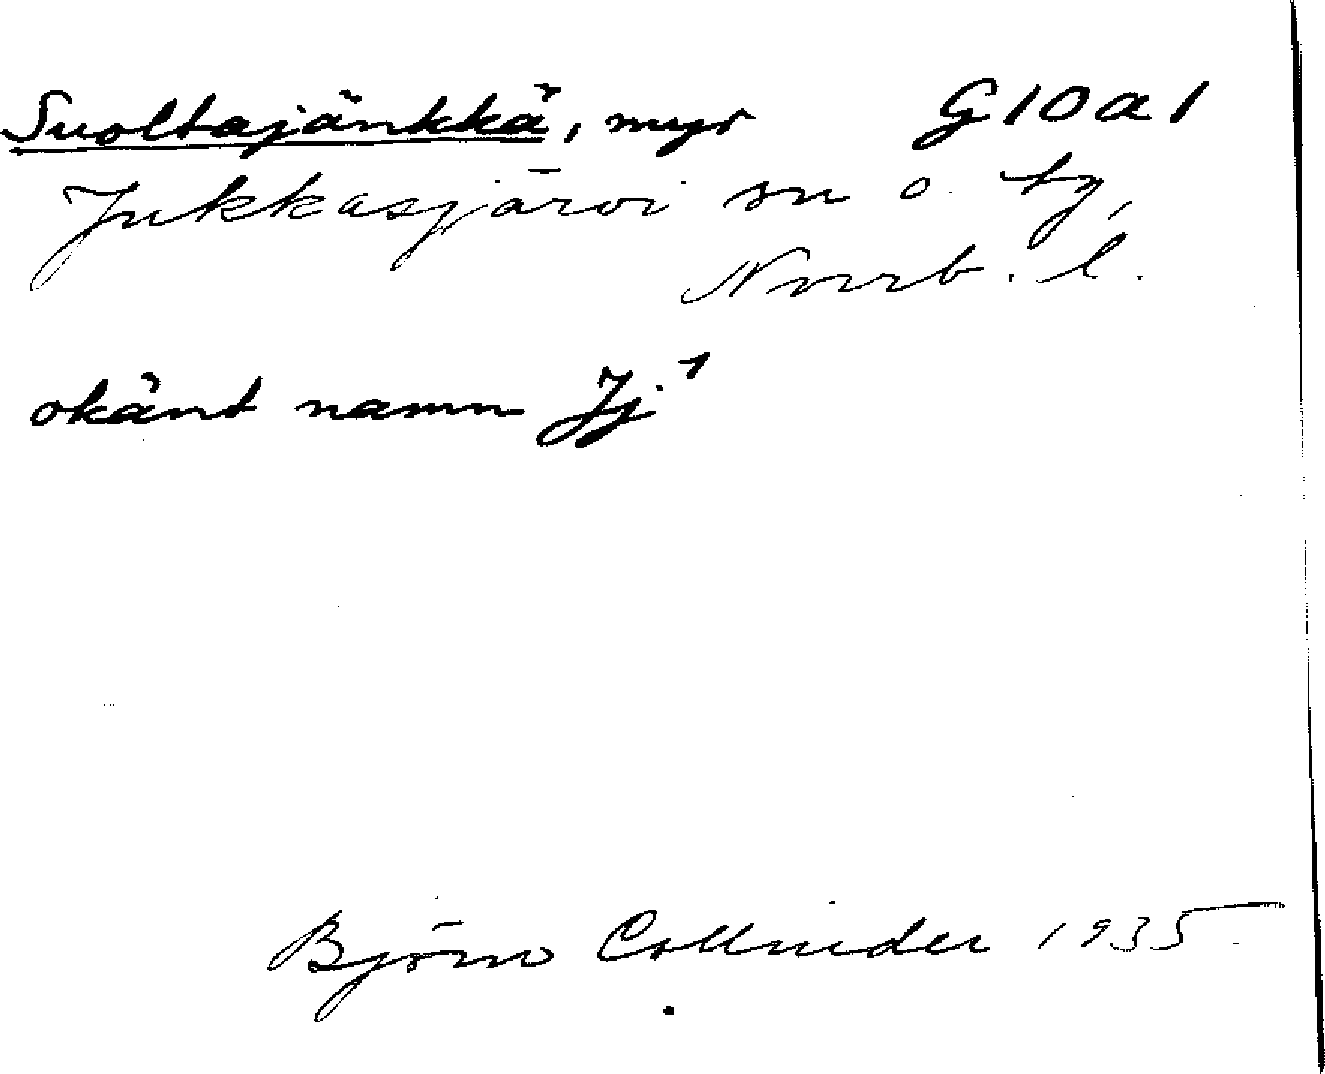 Suoltajänkkä, myr G10a1
Jukkasjärvi sn o. tg,
Norrb. l.
okänt namn Jj¹
Björn Collinder 1935